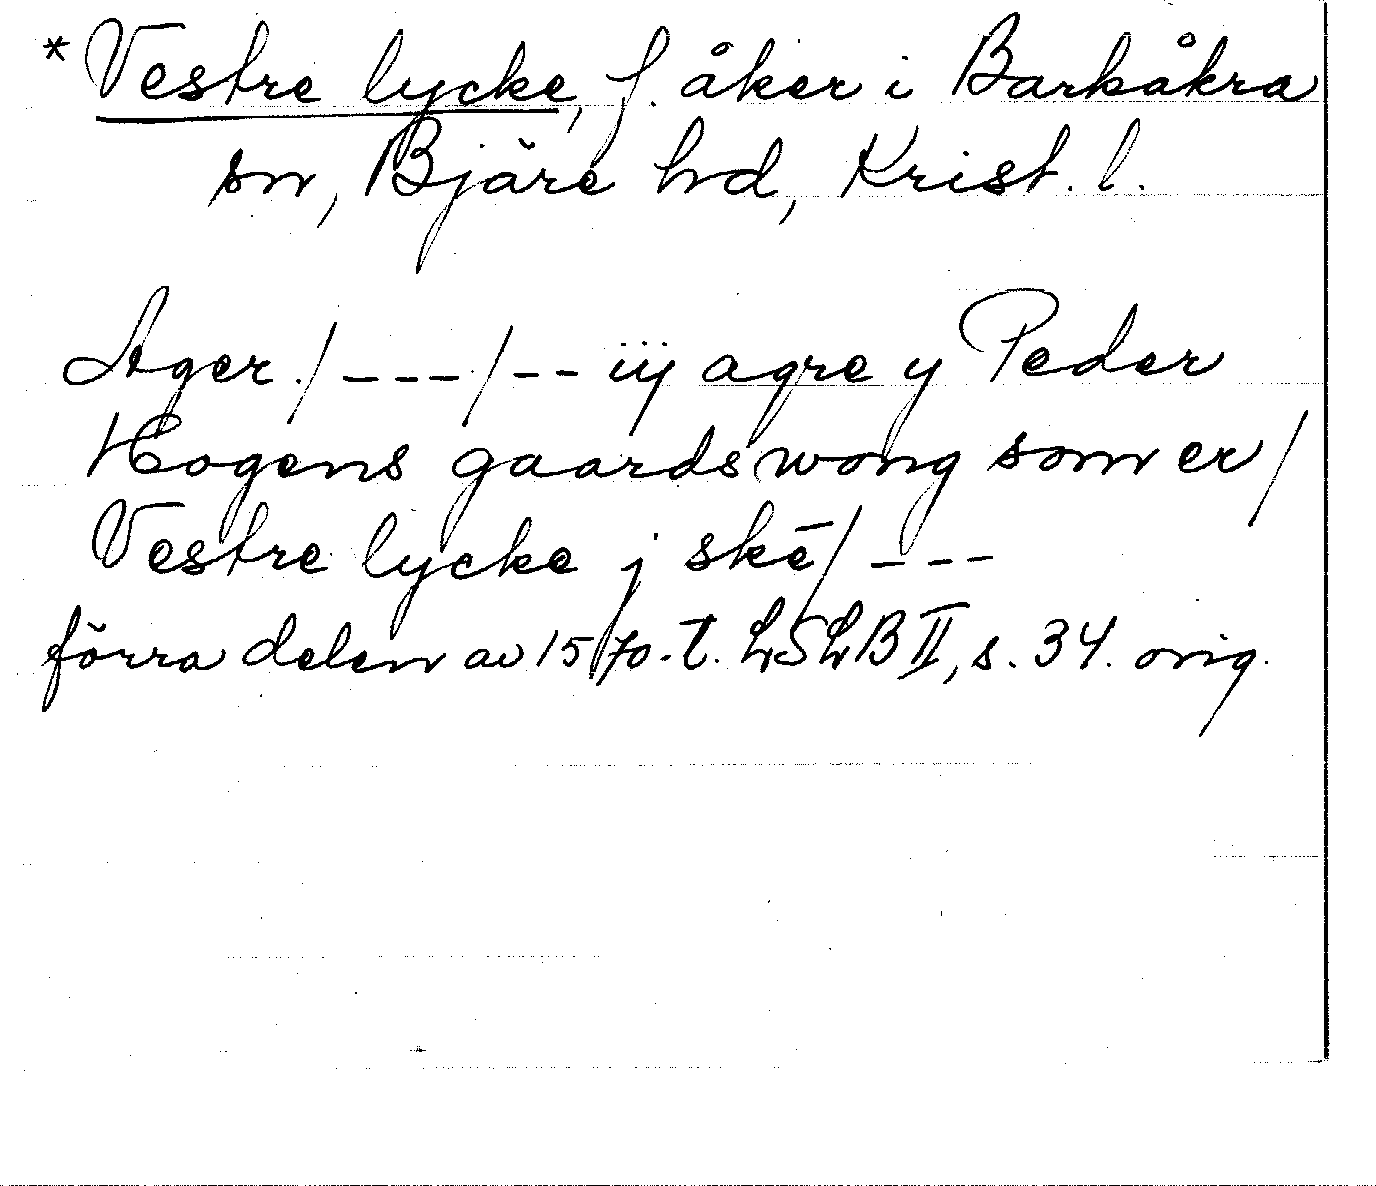 * Vestre lycke, f. åker i Barkåkra
sn, Bjäre hd, Krist. l.
Ager./---/-- iij agre y Peder
Hogens gaards wong som er/
Vestre lycke j skē/---
förra delen av 1570-t. LSLB II, s. 34. orig.